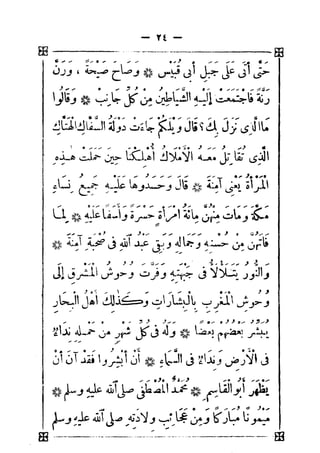 — ٢٤ —
حَتَّى أَتَى عَلَى جَبَلِ أَبِى قُبَيْسٍ * وَصَاحَ صَيْحَةً ، وَرَنَّ
رَنَّةً فَاجْتَمَعَتْ إِلَيْهِ الشَّيَاطِينُ مِنْ كُلِّ جَانِبٍ * وَقَالُوا
مَا الَّذِى نَزَلَ بِكَ؟ قَالَ وَيْلَكُمْ جَاءَتْ دَوْلَةُ السَّفَّاكِ الْهَتَّاكِ
الَّذِى تُقَاتِلُ مَعَهُ الْأَمْلَاكُ أُهْلِكْنَا حِينَ حَمَلَتْ هٰذِهِ
الْمَرْأَةُ يَعْنِى آمِنَةَ * قَالَ وَحَسَدُوهَا عَلَيْهِ جَمِيعُ نِسَاءِ
مَكَّةَ وَمَاتَ مِنْهُنَّ مِائَةُ امْرَأَةٍ حَسْرَةً وَأَسَفًا عَلَيْهِ * لِمَا
فَاتَهُنَّ مِنْ حُسْنِهِ وَجَمَالِهِ وَبَقِىَ عَبْدُ اللهِ فِى صُحْبَةِ آمِنَةَ *
وَالنُّورُ يَتَلَأْلَأُ فِى جَبْهَتِهِ وَفَرَّتْ وُحُوشُ الْمَشْرِقِ إِلَى
وُحُوشِ الْمَغْرِبِ بِالْبِشَارَاتِ وَكَذٰلِكَ أَهْلُ الْبِحَارِ
يُبَشِّرُ بَعْضُهُمْ بَعْضًا * وَلَهُ فِى كُلِّ شَهْرٍ مِنْ حَمْلِهِ نِدَاءٌ
فِى الْأَرْضِ وَنِدَاءٌ فِى السَّمَاءِ * أَنْ أَبْشِرُوا فَقَدْ آنَ أَنْ
يَظْهَرَ أَبُو الْقَاسِمِ * مُحَمَّدٌ الْمُصْطَفَى صلى الله عليه وسلم *
مَيْمُونًا مُبَارَكًا وَمِنْ عَجَائِبِ وِلَادَتِهِ صلى الله عليه وسلم